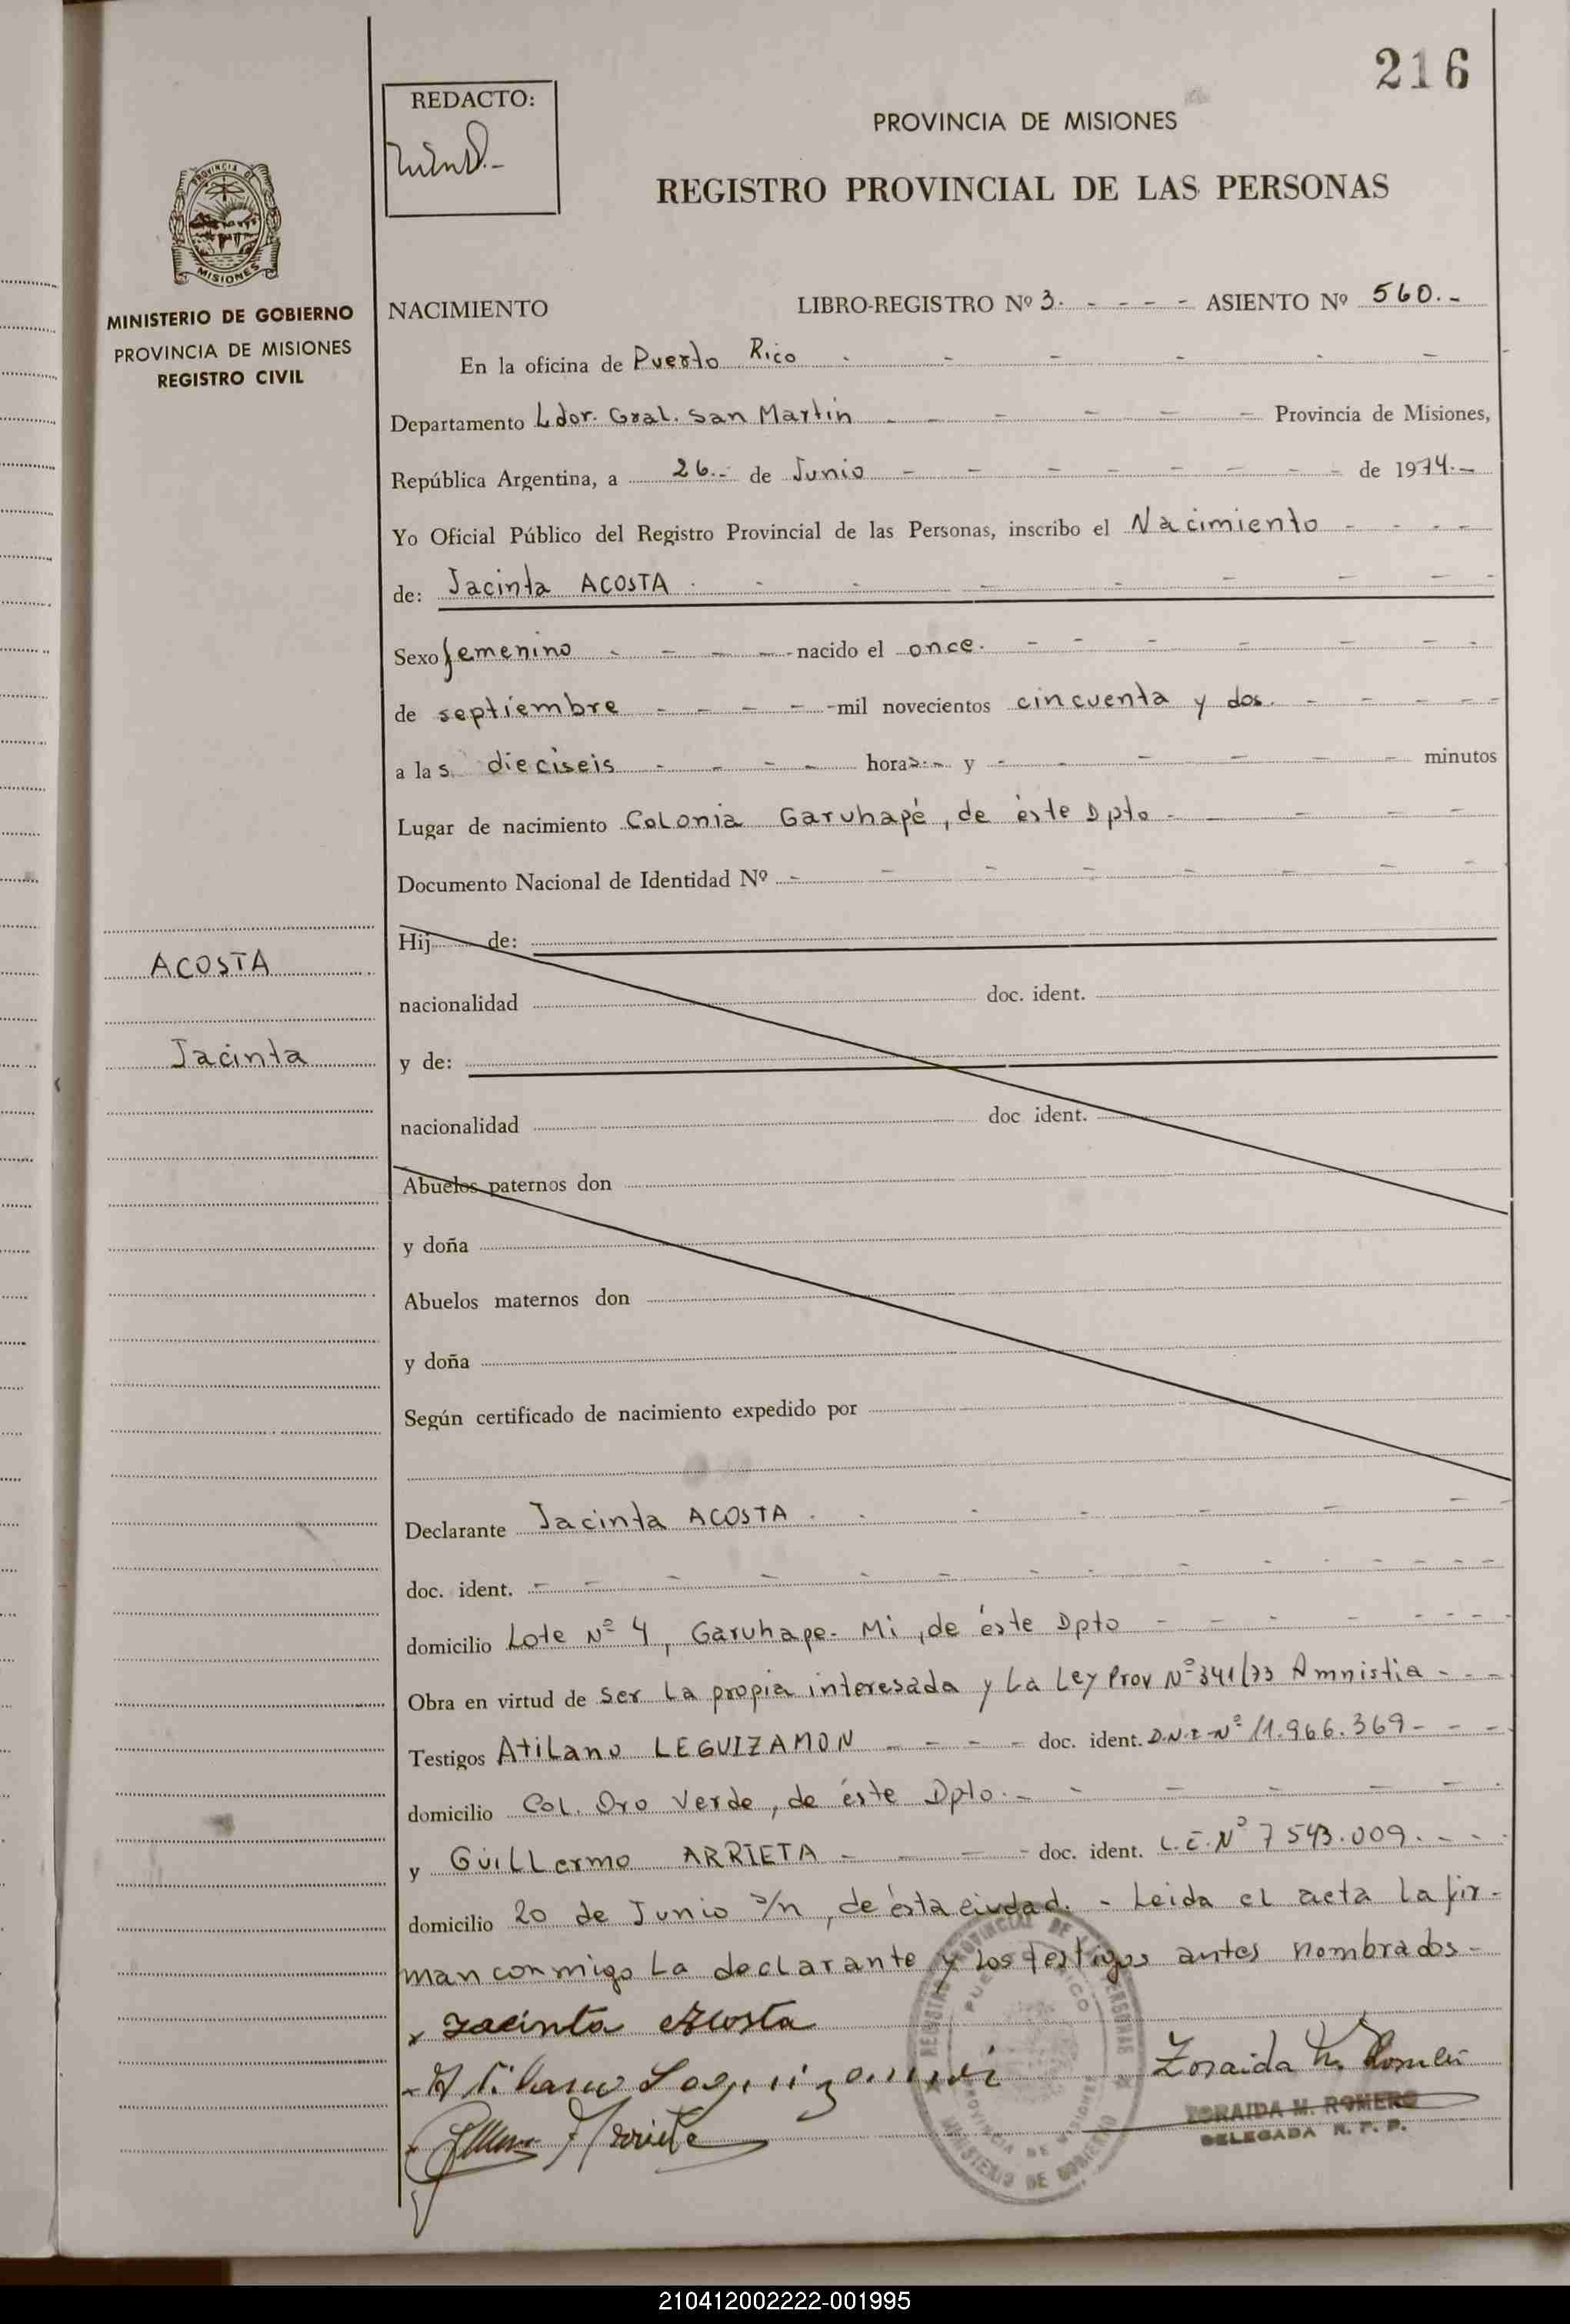 216
REDACTO:
PROVINCIA DE MISIONES
REGISTRO PROVINCIAL DE LAS PERSONAS
PROVINCIA DE
MISIONES
MINISTERIO DE GOBIERNO
PROVINCIA DE MISIONES
REGISTRO CIVIL
NACIMIENTO LIBRO-REGISTRO Nº 3. - - - - ASIENTO Nº 560.-
En la oficina de Puerto Rico - - - - - -
Departamento Ldor. Gral. San Martín - - - - - - Provincia de Misiones,
República Argentina, a 26.- de Junio - - - - - - - - de 1974.-
Yo Oficial Público del Registro Provincial de las Personas, inscribo el Nacimiento - - - -
de: Jacinta ACOSTA - - - - - - - -
Sexo femenino - - - - nacido el once. - - - - - - - -
de septiembre - - - - - mil novecientos cincuenta y dos. - - - - -
a las dieciseis - - - - horas.- y - - - - - - minutos
Lugar de nacimiento Colonia Garuhapé, de éste Dpto - - - - -
Documento Nacional de Identidad Nº - - - - - - - -
Hij de:
ACOSTA
nacionalidad doc. ident.
Jacinta
y de:
nacionalidad doc ident.
Abuelos paternos don
y doña
Abuelos maternos don
y doña
Según certificado de nacimiento expedido por
Declarante Jacinta ACOSTA - - - - - - -
doc. ident. - - - - - - - - - - - - - -
domicilio Lote Nº 4, Garuhape-Mi, de éste Dpto - - - - - - -
Obra en virtud de ser la propia interesada y la Ley Prov Nº 341/73 Amnistia - - -
Testigos Atilano LEGUIZAMON - - - - doc. ident. D.N.I-Nº 11.966.369- - -
domicilio Col. Oro Verde, de éste Dpto.- - - - - -
y Guillermo ARRIETA - - - - doc. ident. L.E.Nº 7543.009. - -
domicilio 20 de Junio s/n, de ésta ciudad. - Leida el acta la fir-
man conmigo la declarante y los testigos antes nombrados-
Jacinta Acosta
Atilano Leguizamon
Zoraida M. Romero
Arrieta
ZORAIDA M. ROMERO
DELEGADA R. P. P.
REGISTRO PROVINCIAL DE LAS PERSONAS
PUERTO RICO
PROVINCIA DE MISIONES
MINISTERIO DE GOBIERNO
210412002222-001995